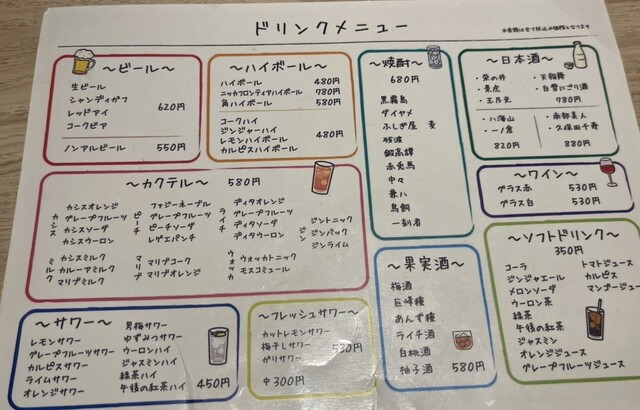 ドリンクメニュー
※金額は全て税込み価格となります
〜ビール〜
生ビール
シャンディガフ
レッドアイ
コークビア
620円
ノンアルビール 550円
〜ハイボール〜
ハイボール 480円
ニッカフロンティアハイボール 780円
角ハイボール 580円
コークハイ
ジンジャーハイ
レモンハイボール
カルピスハイボール
480円
〜焼酎〜
680円
黒霧島
ダイヤメ
ふしぎ屋 麦
残波
鍛高譚
赤兎馬
中々
兼八
鳥飼
一刻者
〜日本酒〜
・栄の井 ・天狗舞
・景虎 ・白雪にごり酒
・王乃光 780円
・八海山
・一ノ蔵
820円
・南部美人
・久保田千寿
880円
〜ワイン〜
グラス赤 530円
グラス白 530円
〜カクテル〜 580円
カシス
カシスオレンジ
カシスグレープフルーツ
カシスソーダ
カシスウーロン
ピーチ
ファジーネーブル
グレープフルーツ
ピーチソーダ
レゲエパンチ
ライチ
ディタオレンジ
グレープフルーツ
ディタソーダ
ディタウーロン
ジン
ジントニック
ジンバック
ジンライム
ミルク
カシスミルク
カルーアミルク
マリブミルク
マリブ
マリブコーク
マリブオレンジ
ウォッカ
ウォッカトニック
モスコミュール
〜果実酒〜
梅酒
巨峰種
あんず種
ライチ酒
白桃酒
柚子酒 580円
〜ソフトドリンク〜
350円
コーラ
ジンジャエール
メロンソーダ
ウーロン茶
緑茶
午後の紅茶
ジャスミン
オレンジジュース
グレープフルーツジュース
トマトジュース
カルピス
マンゴージュース
〜サワー〜
レモンサワー
グレープフルーツサワー
カルピスサワー
ライムサワー
オレンジサワー
男梅サワー
ゆずみつサワー
ウーロンハイ
ジャスミンハイ
緑茶ハイ
午後の紅茶ハイ 450円
〜フレッシュサワー〜
カットレモンサワー
梅干しサワー
ガリサワー
中300円